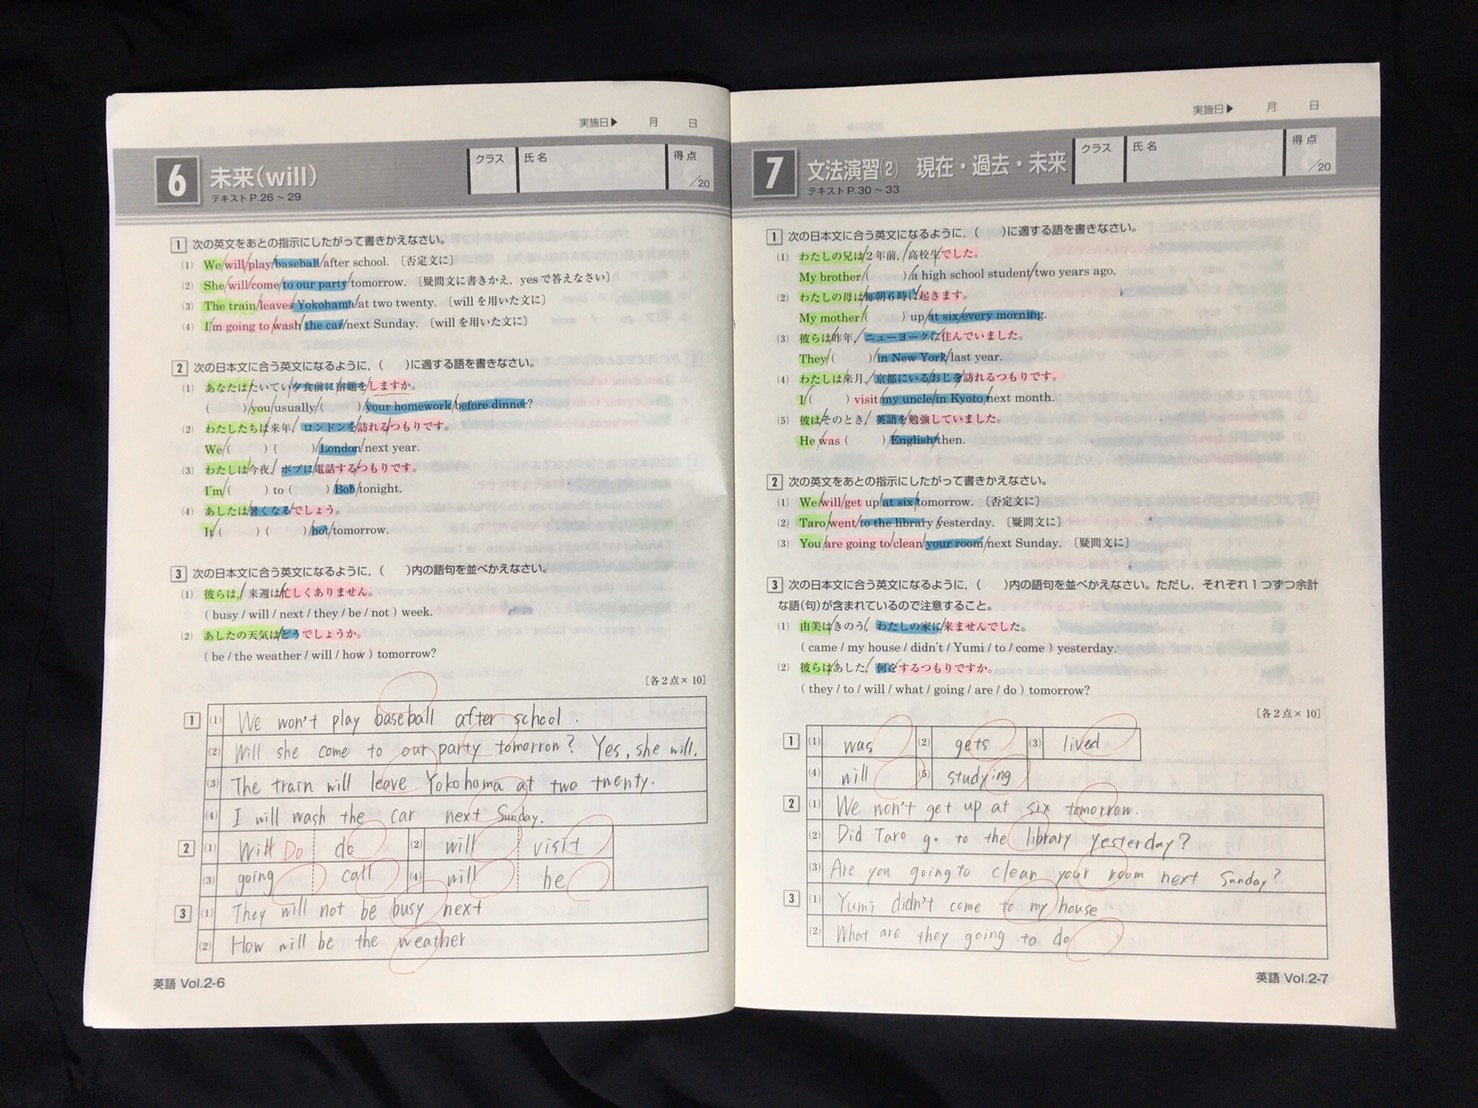 実施日▶ 月 日
6 未来(will)
テキストP.26~29
クラス 氏名 得点 /20
1 次の英文をあとの指示にしたがって書きかえなさい。
(1) We/will/play/baseball/after school. 〔否定文に〕
(2) She/will/come/to our party/tomorrow. 〔疑問文に書きかえ、yesで答えなさい〕
(3) The train/leaves/Yokohama/at two twenty. 〔willを用いた文に〕
(4) I'm going to/wash/the car/next Sunday. 〔willを用いた文に〕
2 次の日本文に合う英文になるように,( )に適する語を書きなさい。
(1) あなたは/たいてい/夕食前に/宿題を/しますか。
( )/you/usually/( )/your homework/before dinner?
(2) わたしたちは/来年,/ロンドンを/訪れる/つもりです。
We/( ) ( )/London/next year.
(3) わたしは/今夜,/ボブに/電話する/つもりです。
I'm/( ) to ( )/Bob/tonight.
(4) あしたは/暑くなる/でしょう。
It/( ) ( )/hot/tomorrow.
3 次の日本文に合う英文になるように,( )内の語句を並べかえなさい。
(1) 彼らは,/来週は/忙しくありません。
( busy / will / next / they / be / not ) week.
(2) あしたの天気は/どう/でしょうか。
( be / the weather / will / how ) tomorrow?
[各2点×10]
1 (1) We won't play baseball after school.
(2) Will she come to our party tomorrow? Yes, she will.
(3) The train will leave Yokohama at two twenty.
(4) I will wash the car next Sunday.
2 (1) Will Do do (2) will visit
(3) going call (4) will be
3 (1) They will not be busy next
(2) How will be the weather
英語 Vol.2-6
実施日▶ 月 日
7 文法演習(2) 現在・過去・未来
テキストP.30~33
クラス 氏名 得点 /20
1 次の日本文に合う英文になるように,( )に適する語を書きなさい。
(1) わたしの兄は/2年前,/高校生/でした。
My brother/( )/a high school student/two years ago.
(2) わたしの母は/毎朝6時に/起きます。
My mother/( ) up/at six/every morning.
(3) 彼らは/昨年,/ニューヨークに/住んでいました。
They/( )/in New York/last year.
(4) わたしは/来月,/京都にいる/おじを/訪れるつもりです。
I/( ) visit/my uncle/in Kyoto/next month.
(5) 彼は/そのとき,/英語を/勉強していました。
He/was ( )/English/then.
2 次の英文をあとの指示にしたがって書きかえなさい。
(1) We/will/get up/at six/tomorrow. 〔否定文に〕
(2) Taro/went/to the library/yesterday. 〔疑問文に〕
(3) You/are going to/clean/your room/next Sunday. 〔疑問文に〕
3 次の日本文に合う英文になるように,( )内の語句を並べかえなさい。ただし,それぞれ1つずつ余計
な語(句)が含まれているので注意すること。
(1) 由美は/きのう,/わたしの家に/来ませんでした。
( came / my house / didn't / Yumi / to / come ) yesterday.
(2) 彼らは/あした,/何を/するつもりですか。
( they / to / will / what / going / are / do ) tomorrow?
[各2点×10]
1 (1) was (2) gets (3) lived
(4) will (5) studying
2 (1) We won't get up at six tomorrow.
(2) Did Taro go to the library yesterday?
(3) Are you going to clean your room next Sunday?
3 (1) Yumi didn't come to my house
(2) What are they going to do
英語 Vol.2-7